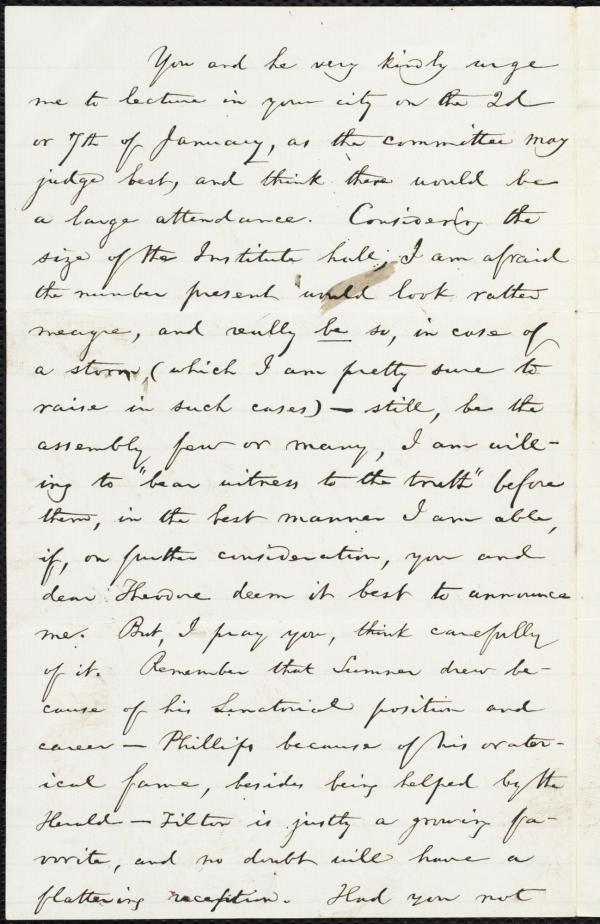 You and he very kindly urge
me to lecture in your city on the 2d
or 7th of January, as the committee may
judge best, and think there would be
a large attendance. Considering the
size of the Institute hall, I am afraid
the number present would look rather
meagre, and really be so, in case of
a storm, (which I am pretty sure to
raise in such cases) — still, be the
assembly few or many, I am will-
ing to "bear witness to the truth" before
them, in the best manner I am able,
if, on further consideration, you and
dear Theodore deem it best to announce
me. But, I pray you, think carefully
of it. Remember that Sumner drew be-
cause of his Senatorial position and
career — Phillips because of his orator-
ical fame, besides being helped by the
Herald — Tilton is justly a growing fa-
vorite, and no doubt will have a
flattering reception. Had you not